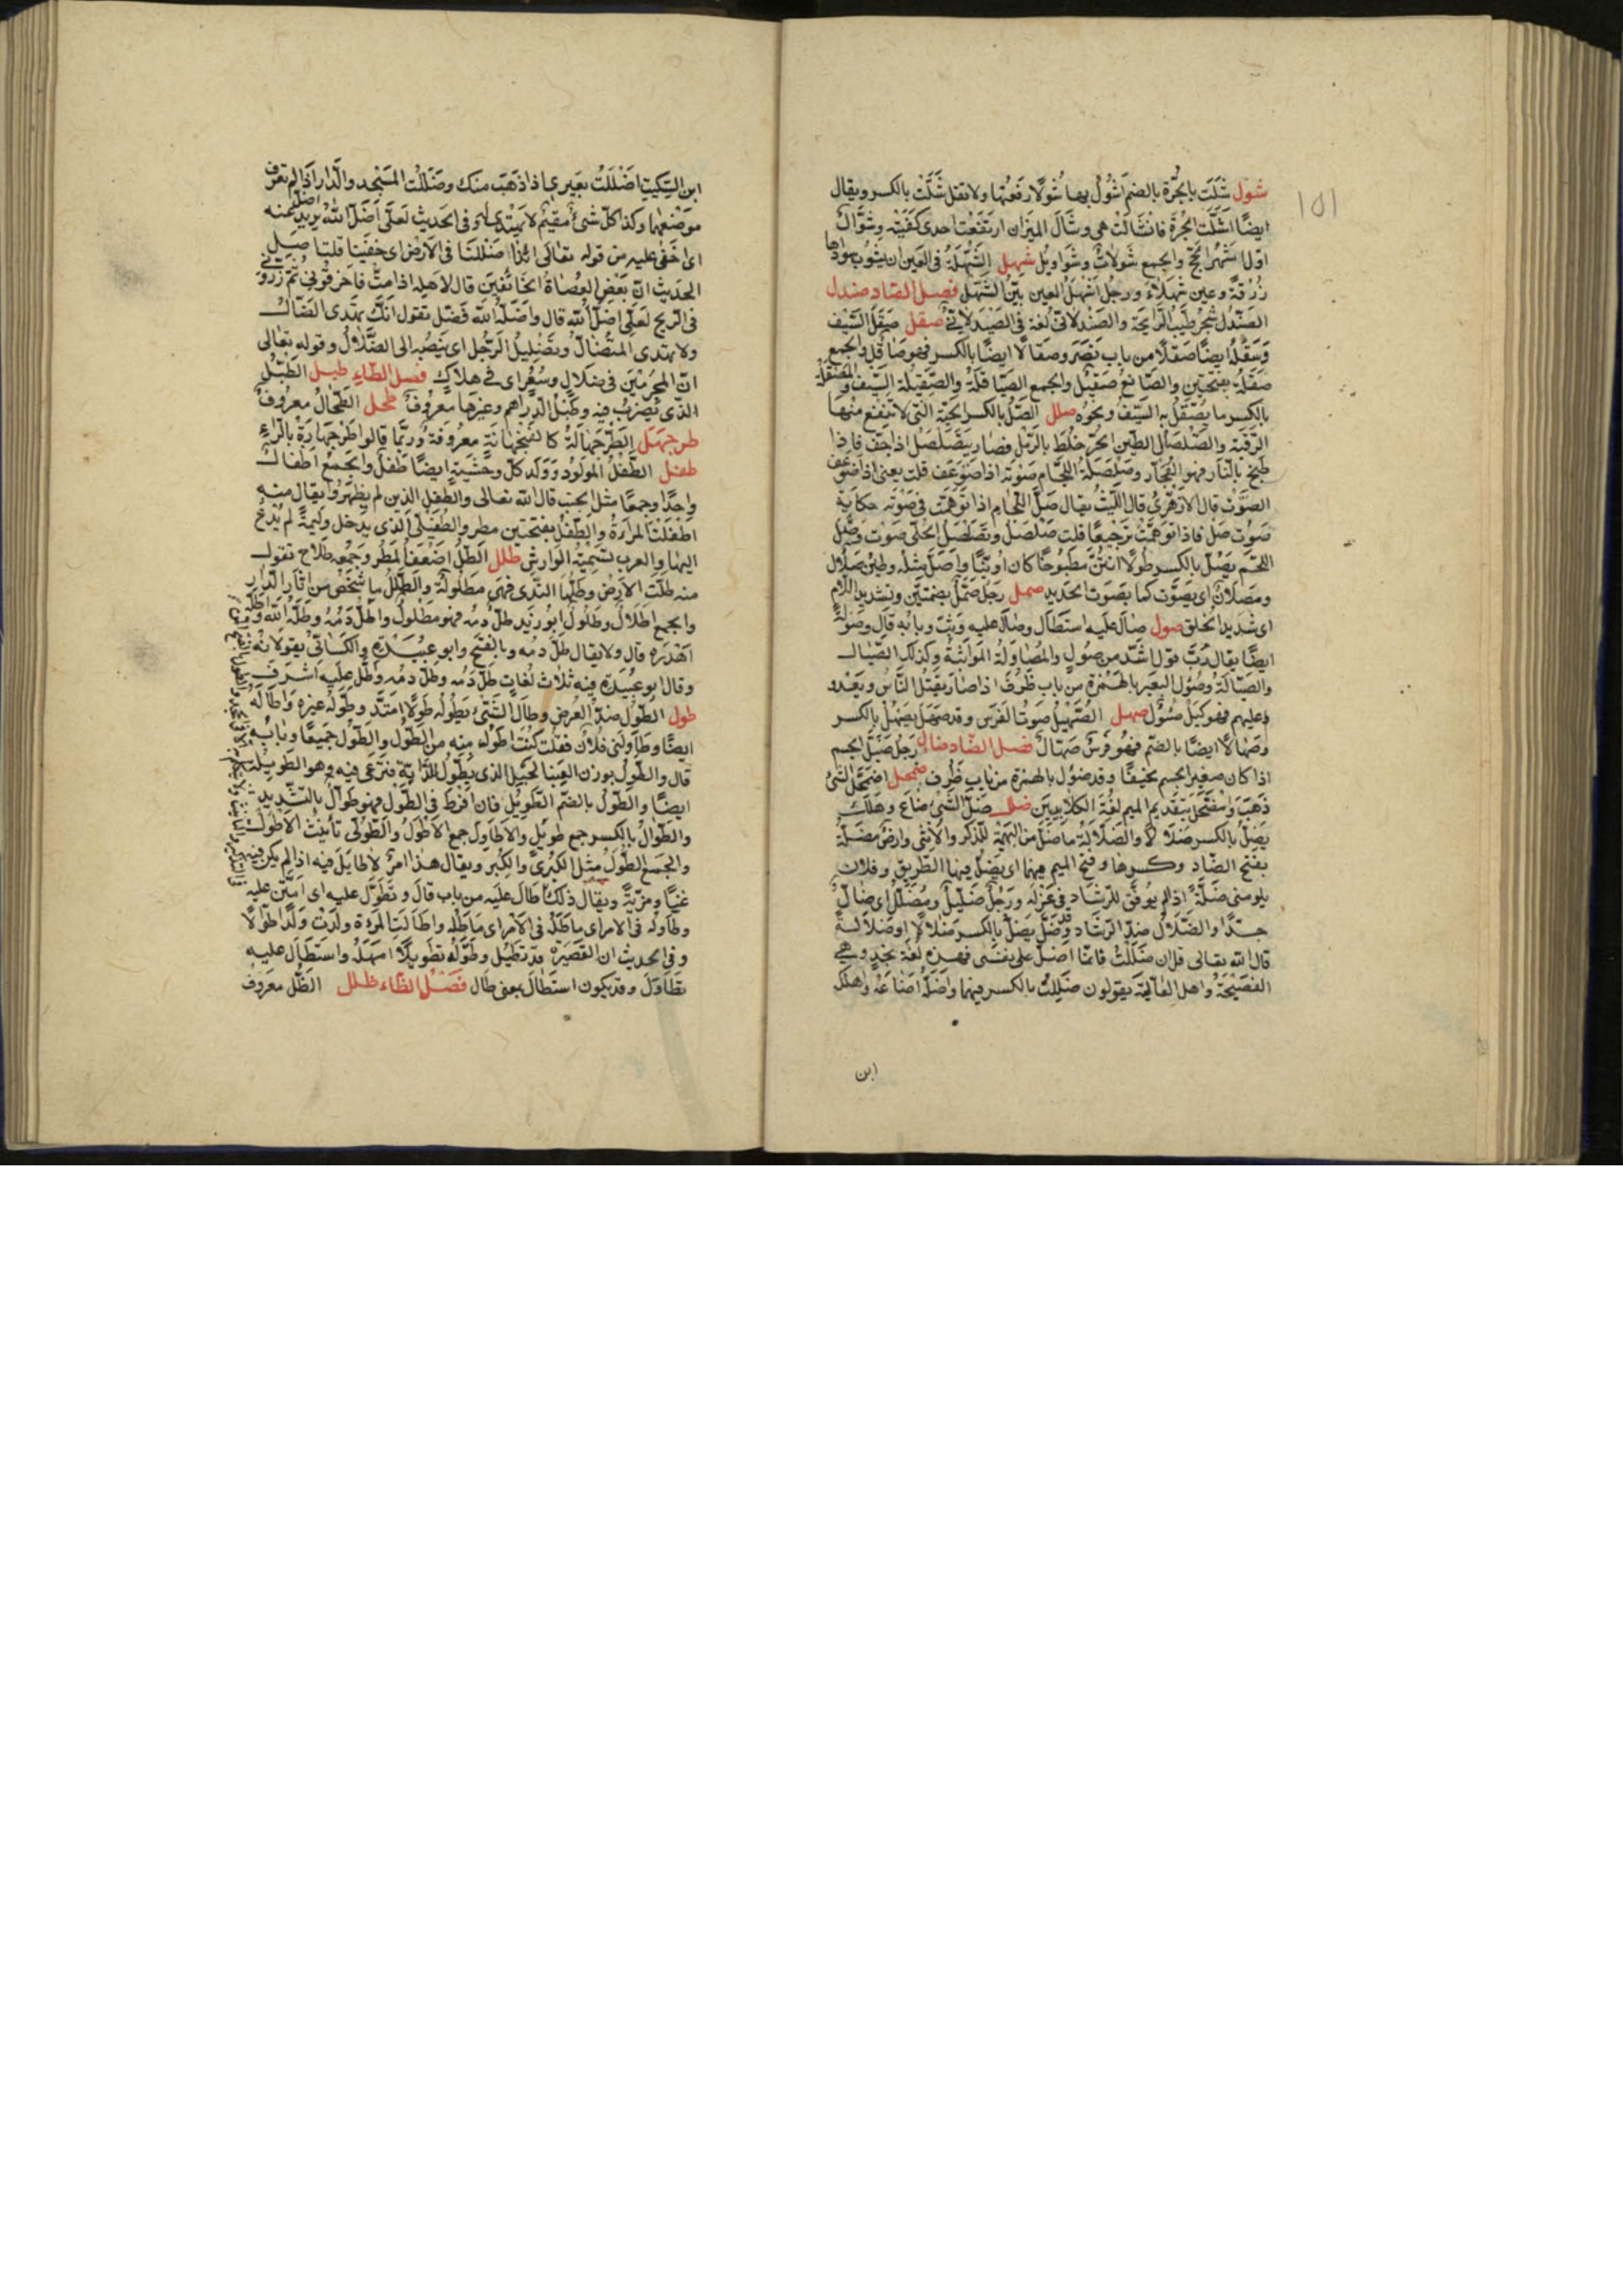 شول شلت بالجرة بالضم اشول بها شولا رفعتها ولا تقل شلت بالكسر ويقال
ايضا اشلت الجرة فانشالت هي وشال الميزان ارتفعت احدى كفتيه وشوال
اول اشهر الحج والجمع شوالات وشواويل شهل الشهلة في العين ان يشوب سوادها
زرقة وعين شهلاء ورجل اشهل العين بين الشهل فصل الصاد صندل
الصندل شجر طيب الرايحة والصندلاني لغة في الصيدلاني صقل صقل السيف
وسقله ايضا صقلا من باب نصر وصقالا ايضا بالكسر فهو صاقل والجمع
صقلة بفتحتين والصانع صيقل والجمع الصياقلة والصقيلة السيف والمصقلة
بالكسر ما يصقل به السيف ونحوه صلل الصل بالكسر الحية التي لا تنفع منها
الرقية والصلصال الطين الحر خلط بالرمل فصار يتصلصل اذا جف فاذا
طبخ بالنار فهو الفخار وصلصلة اللجام صوته اذا ضوعف قلت يعني اذا ضوعف
الصوت قال الازهري قال الليث يقال صل اللجام اذا توهمت في صوته حكاية
صوت صل فاذا توهمت ترجيعا قلت صلصل وتصلصل الحلي صوت وصل
اللحم يصل بالكسر صلولا انتن مطبوخا كان او نيئا واصل مثله وطين صلال
ومصلال اى يصوت كما يصوت الحديد صمل رجل صمل بضمتين وتشديد اللام
اى شديد الخلق صول صال عليه استطال وصال عليه وثب وبابه قال وصولة
ايضا يقال رب قول اشد من صول والمصاولة المواثبة وكذلك الصيال
والصيالة وصؤل البعير بالهمزة من باب ظرف اذا صار يقتل الناس ويعدو
عليهم فهو جمل صئول صهل الصهيل صوت الفرس وقد صهل يصهل بالكسر
وصهالا ايضا بالضم فهو فرس صهال فصل الضاد ضال رجل ضئيل الجسم
اذا كان صغير الجسم نحيفا وقد ضؤل بالهمزة من باب ظرف ضمحل اضمحل الشئ
ذهب وامضحل بتقديم الميم لغة الكلابيين ضلل ضل الشئ ضاع وهلك
يضل بالكسر ضلالا والضالة ما ضل من البهيمة للذكر والانثى وارض مضلة
بفتح الضاد وكسرها وفتح الميم فيهما اى يضل فيها الطريق وفلان
يلومني ضلة اذا لم يوفق للرشاد في عزله ورجل ضليل ومضلل اى ضال
جدا والضلال ضد الرشاد وقد ضل يضل بالكسر ضلالا وضلالة
قال الله تعالى قل ان ضللت فانما اضل على نفسي فهذه لغة نجد وهي
الفصيحة واهل العالية يقولون ضللت بالكسر فيهما واضله اضاعه واهلك
ابن
ابن السكيت اضللت بعيري اذا ذهب منك وضللت المسجد والدار اذا لم تعرف
موضعهما وكذا كل شئ مقيم لا يهتدى له وفي الحديث لعلي اضل الله يريد اضل عنه
اى اخفى عليه من قوله تعالى ائذا ضللنا في الارض اى خفينا قلت
الحديث ان بعض العصاة الخائفين قال لاهله اذا مت فاحرقوني ثم ذروني
في الريح لعلي اضل الله قال واضله الله فضل تقول انك تهدى الضال
ولا تهدى المتضال وتضليل الرجل اى ينسبه الى الضلال وقوله تعالى
ان المجرمين في ضلال وسعر اى في هلاك فصل الطاء طبل الطبل
الذي يضرب فيه وطبل الدراهم وغيرها معروف طحل الطحال معروف
طرجهل الطرجهالة كالفنجانة معروفة وربما قالوا طرجهارة بالراء
طفل الطفل المولود وولد كل وحشية ايضا طفل والجمع اطفال
واحدا وجمعا مثل الجنب قال الله تعالى والطفل الذين لم يظهروا يقال منه
اطفلت المراة والطفل بفتحتين مطر والطفيلي الذي يدخل وليمة لم يدع
اليها والعرب تسميه الوارش طلل الطل اضعف المطر وجمعه طلال تقول
منه طلت الارض وطلها الندى فهي مطلولة والطلل ما شخص من اثار الدار
والجمع اطلال وطلول ابو زيد طل دمه فهو مطلول واطل دمه وطله الله واطله
اهدره قال ولا يقال طل دمه وبالفتح وابو عبيدة والكسائي يقولانه
وقال ابو عبيدة فيه ثلاث لغات طل دمه وطل دمه واطل عليه اشرف
طول الطول ضد العرض وطال الشئ يطول طولا امتد وطوله غيره واطاله
ايضا وطاولني فلان فطلته كنت اطول منه من الطول والطول جميعا وبابه
قال والطول بوزن العنب الحبل الذي يطول للدابة فترعى فيه وهو الطويلة
ايضا والطوال بالضم الطويل فان افرط في الطول فهو طوال بالتشديد
والطوال بالكسر جمع طويل والاطاول جمع الاطول والطولى تأنيث الاطول
والجمع الطول مثل الكبرى والكبر ويقال هذا امر لا طايل فيه اذا لم يكن فيه
غنى ومزية ويقال ذلك طال عليه من باب قال وتطول عليه اى امتن عليه
وطاوله في الامر اى ماطله في الامر اى ماطله واطالت المراة ولدت ولدا طوالا
وفي الحديث ان القصيرة قد تطيل وطول له تطويلا امهله واستطال عليه
تطاول وقد يكون استطال بمعنى طال فصل الظاء ظلل الظل معروف